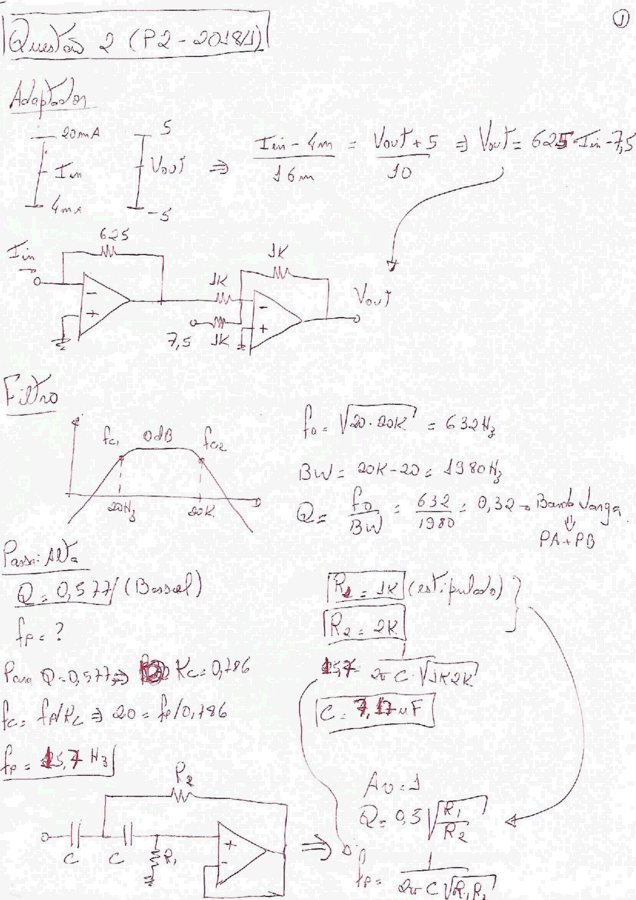 1
Questão 2 (P2-2018/1)
Adaptador
20mA 5
Iin Vout ⇒ (Iin - 4m)/16m = (Vout + 5)/10 ⇒ Vout = 625 Iin - 7,5
4mA -5
625
Iin
1K
1K
- + - +
Vout
7,5 1K
Filtro
fc1 0dB fc2
20Hz 20K
f0 = √(20·20K) = 632Hz
BW = 20K - 20 = 1980Hz
Q = f0/BW = 632/1980 = 0,32 → Banda Larga
⇓
PA+PB
Passa-Alta
Q = 0,577 (Bessel)
fp = ?
Para Q = 0,577 ⇒ Kc = 0,786
fc = fp/Kc ⇒ 20 = fp/0,786
fp = 15,7 Hz
R1 = 1K (estipulado)
R2 = 2K
15,7 = 1/(2πC√(1K2K))
C = 7,17uF
R2
C C R1
+ -
⇒
Av = 1
Q = 0,5√(R1/R2)
fp = 1/(2πC√(R1R2))